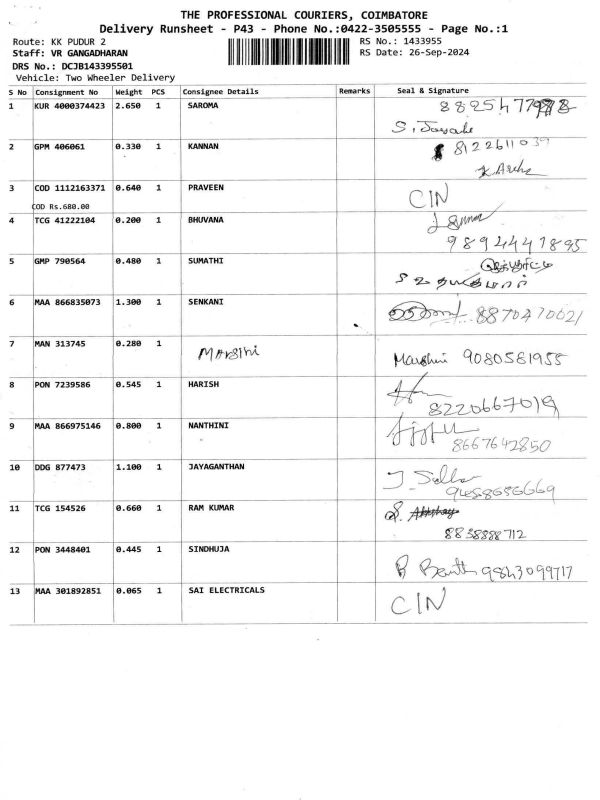 THE PROFESSIONAL COURIERS, COIMBATORE
Delivery Runsheet - P43 - Phone No.:0422-3505555 - Page No.:1
Route: KK PUDUR 2 RS No.: 1433955
Staff: VR GANGADHARAN RS Date: 26-Sep-2024
DRS No.: DCJB143395501
Vehicle: Two Wheeler Delivery
S No Consignment No Weight PCS Consignee Details Remarks Seal & Signature
1 KUR 4000374423 2.650 1 SAROMA
2 GPM 406061 0.330 1 KANNAN
3 COD 1112163371 0.640 1 PRAVEEN CIN
COD Rs.680.00
4 TCG 41222104 0.200 1 BHUVANA
9894441895
5 GMP 790564 0.480 1 SUMATHI
6 MAA 866835073 1.300 1 SENKANI 8870470621
7 MAN 313745 0.280 1 MARSINI Marshini 9080581955
8 PON 7239586 0.545 1 HARISH
8220667019
9 MAA 866975146 0.800 1 NANTHINI
8667642850
10 DDG 877473 1.100 1 JAYAGANTHAN
11 TCG 154526 0.660 1 RAM KUMAR
8838888712
12 PON 3448401 0.445 1 SINDHUJA
9843099717
13 MAA 301892851 0.065 1 SAI ELECTRICALS CIN